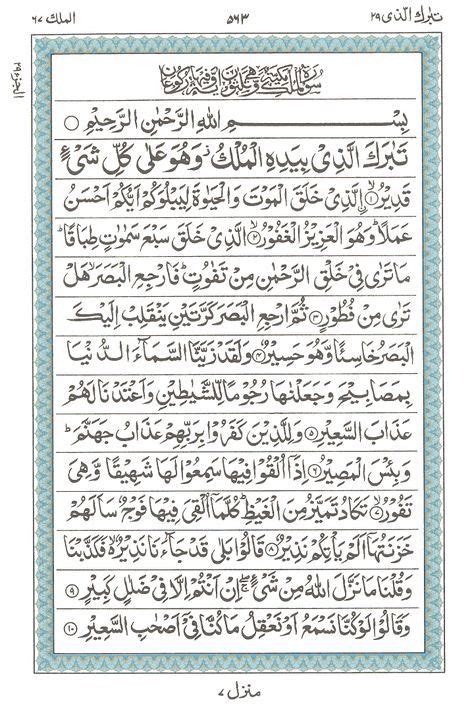 تبرك الذى ٢٩
٥٦٣
الملك ٦٧
سورة الملك مكية وهى ثلثون اية وفيها ركوعان
بِسْمِ اللهِ الرَّحْمٰنِ الرَّحِيْمِ
تَبٰرَكَ الَّذِىْ بِيَدِهِ الْمُلْكُ وَهُوَ عَلٰى كُلِّ شَىْءٍ
قَدِيْرُ ۙ﴿١﴾ اِلَّذِىْ خَلَقَ الْمَوْتَ وَالْحَيٰوةَ لِيَبْلُوَكُمْ اَيُّكُمْ اَحْسَنُ
عَمَلًا ؕ وَهُوَ الْعَزِيْزُ الْغَفُوْرُ ۙ﴿٢﴾ الَّذِىْ خَلَقَ سَبْعَ سَمٰوٰتٍ طِبَاقًا ؕ
مَا تَرٰى فِىْ خَلْقِ الرَّحْمٰنِ مِنْ تَفٰوُتٍ ؕ فَارْجِعِ الْبَصَرَ ۙ هَلْ
تَرٰى مِنْ فُطُوْرٍ ﴿٣﴾ ثُمَّ ارْجِعِ الْبَصَرَ كَرَّتَيْنِ يَنْقَلِبْ اِلَيْكَ
الْبَصَرُ خَاسِئًا وَّهُوَ حَسِيْرٌ ﴿٤﴾ وَلَقَدْ زَيَّنَّا السَّمَآءَ الدُّنْيَا
بِمَصَابِيْحَ وَجَعَلْنٰهَا رُجُوْمًا لِّلشَّيٰطِيْنِ وَاَعْتَدْنَا لَهُمْ
عَذَابَ السَّعِيْرِ ﴿٥﴾ وَلِلَّذِيْنَ كَفَرُوْا بِرَبِّهِمْ عَذَابُ جَهَنَّمَ ؕ
وَبِئْسَ الْمَصِيْرُ ﴿٦﴾ اِذَآ اُلْقُوْا فِيْهَا سَمِعُوْا لَهَا شَهِيْقًا وَّهِىَ
تَفُوْرُ ۙ﴿٧﴾ تَكَادُ تَمَيَّزُ مِنَ الْغَيْظِ ؕ كُلَّمَآ اُلْقِىَ فِيْهَا فَوْجٌ سَاَلَهُمْ
خَزَنَتُهَآ اَلَمْ يَاْتِكُمْ نَذِيْرٌ ﴿٨﴾ قَالُوْا بَلٰى قَدْ جَآءَنَا نَذِيْرٌ ۙ فَكَذَّبْنَا
وَقُلْنَا مَا نَزَّلَ اللهُ مِنْ شَىْءٍ ۖ اِنْ اَنْتُمْ اِلَّا فِىْ ضَلٰلٍ كَبِيْرٍ ﴿٩﴾
وَقَالُوْا لَوْ كُنَّا نَسْمَعُ اَوْ نَعْقِلُ مَا كُنَّا فِىْٓ اَصْحٰبِ السَّعِيْرِ ﴿١٠﴾
الجزء ٢٩
منزل ٧